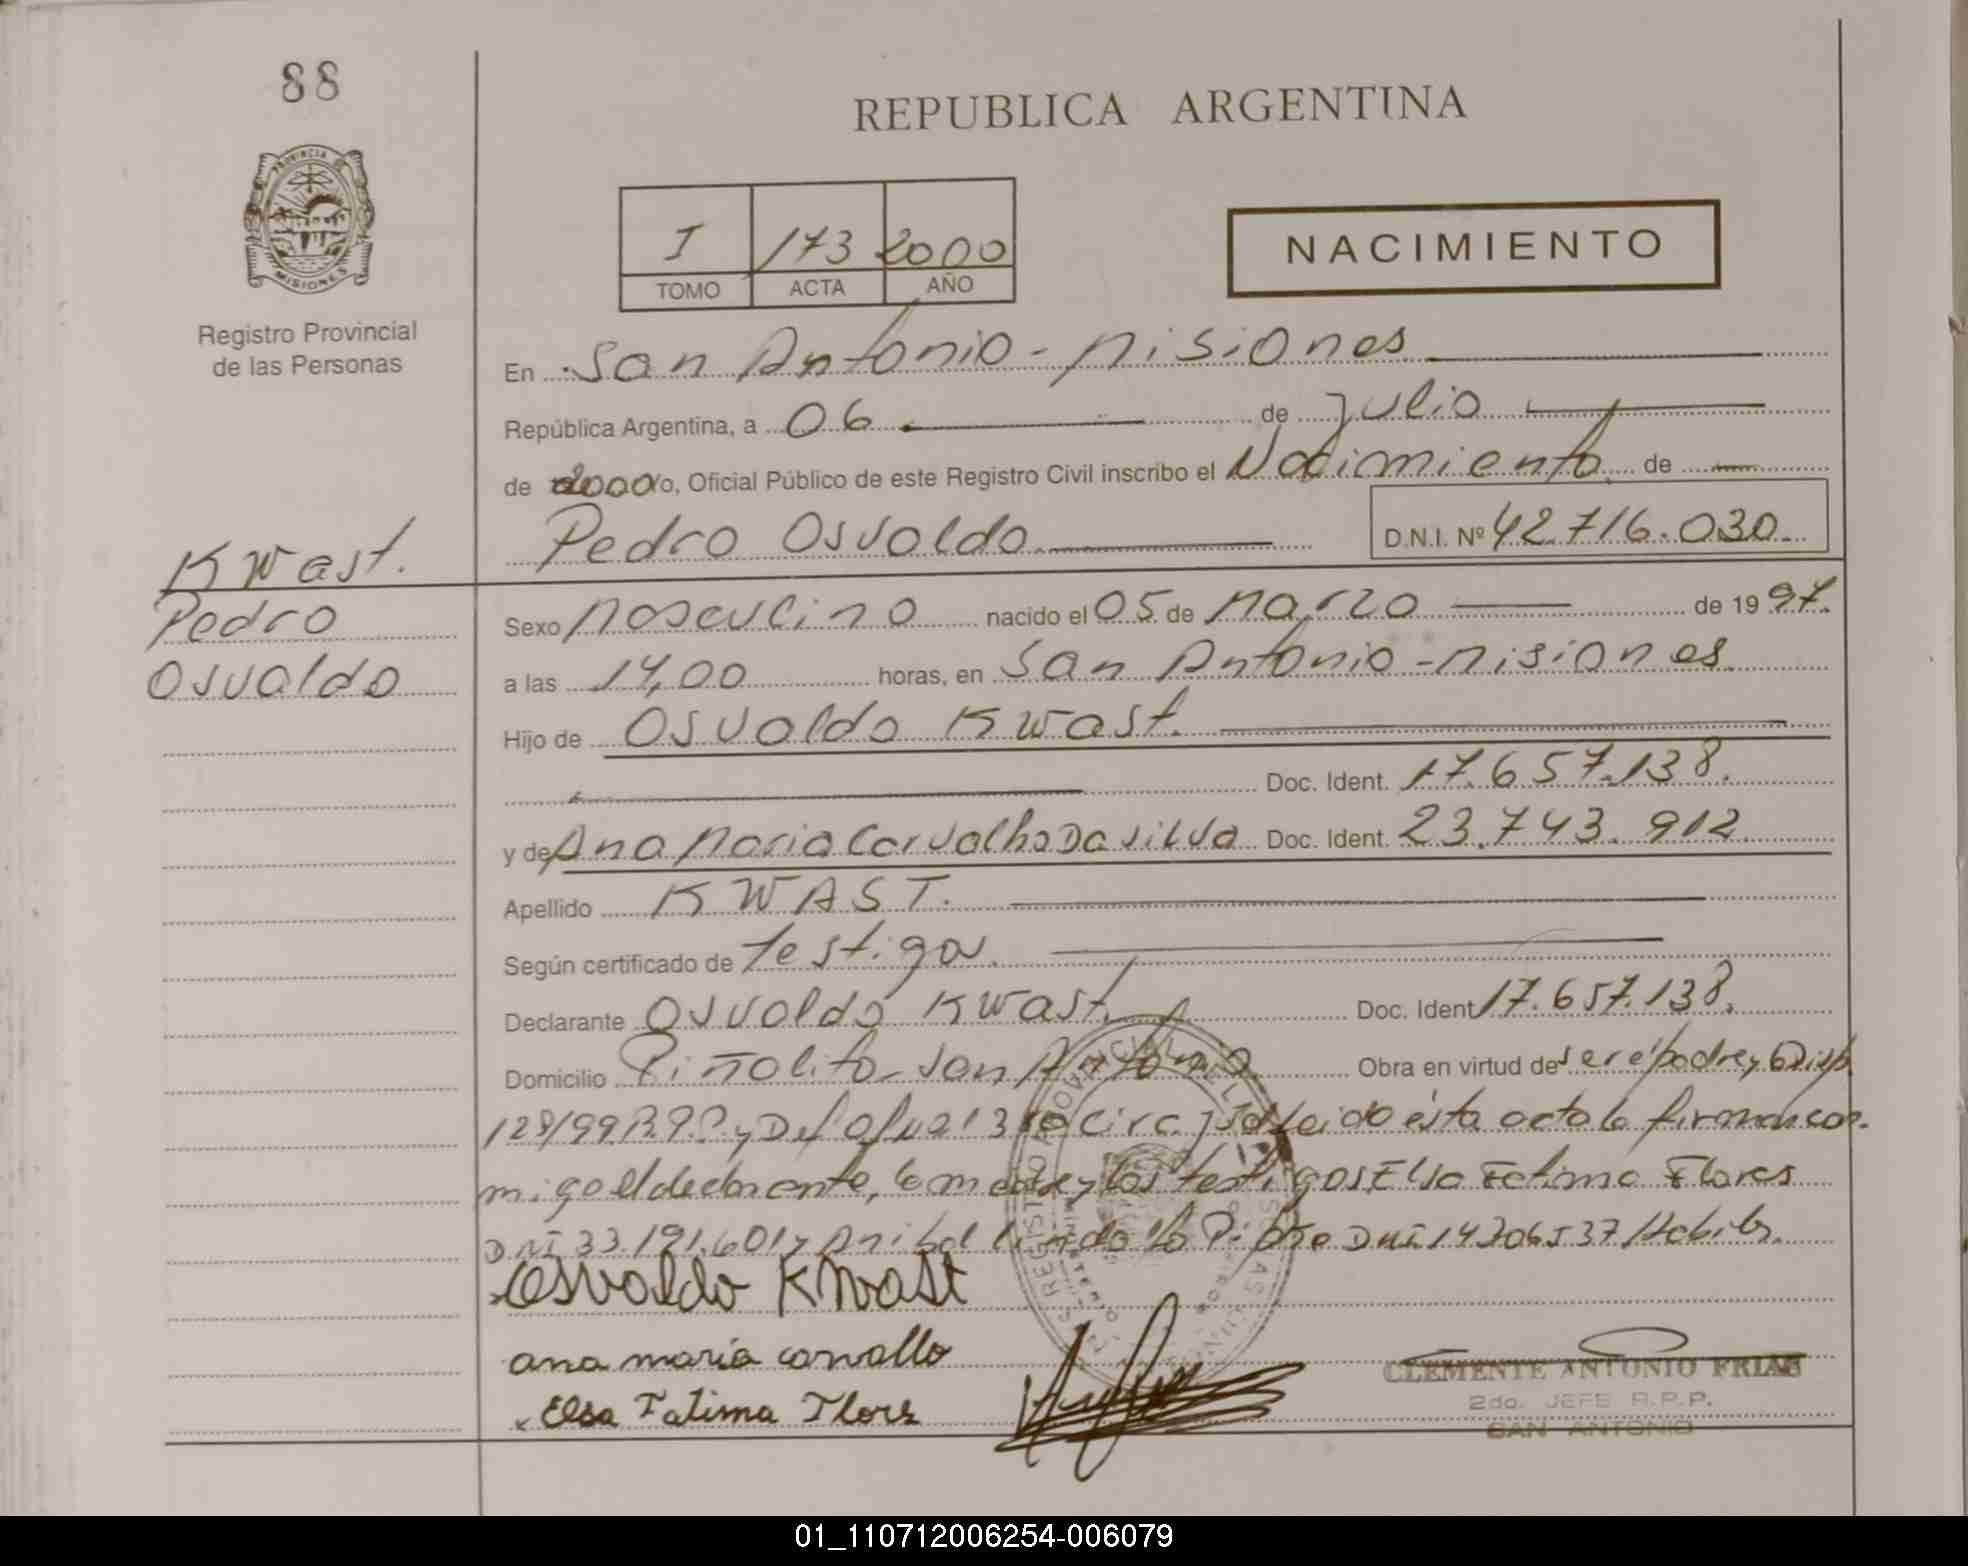 88
REPUBLICA ARGENTINA
PROVINCIA DE
MISIONES
Registro Provincial
de las Personas
I 173 2000
TOMO ACTA AÑO
NACIMIENTO
En San Antonio - Misiones
República Argentina, a 06 de Julio
de 2000 yo, Oficial Público de este Registro Civil inscribo el Nacimiento de
Pedro Osvaldo D.N.I. Nº 42.716.030
Kwast.
Pedro
Osvaldo
Sexo Masculino nacido el 05 de Marzo de 1997.
a las 14,00 horas, en San Antonio - Misiones
Hijo de Osvaldo Kwast.
Doc. Ident. 17.657.138.
y de Ana Maria Carvalho Da Silva Doc. Ident. 23.743.912
Apellido KWAST.
Según certificado de testigos.
Declarante Osvaldo Kwast. Doc. Ident 17.657.138.
Domicilio Piñalito - San Antonio Obra en virtud de ser el padre y Disp.
128/99 R.P.P. y Def Circ. leida ésta acta la firman con-
migo el declarante, la madre y los testigos Elsa Fatima Flores
DNI 33.191.601 y Anibal DNI 14206537 Habiles.
Osvaldo Kwast
ana maria carvallo
x Elsa Fatima Flores
CLEMENTE ANTONIO FRIAS
2do. JEFE R.P.P.
SAN ANTONIO
01_110712006254-006079